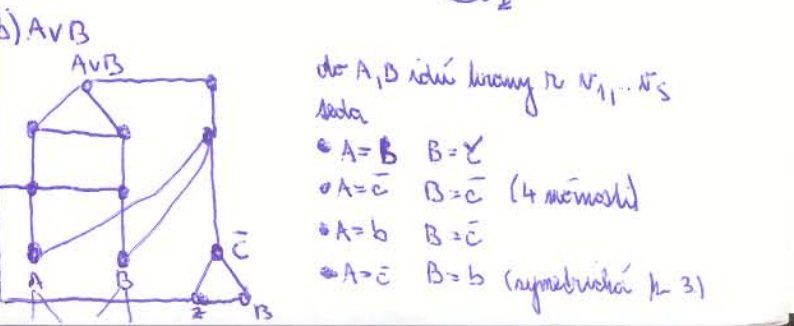 b) A∨B
A∨B
do A, B idú hrany z v₁, .. v₅
teda
• A=b B=c̄
• A=c̄ B=c̄ (4 možnosti)
• A=b B=c̄
• A=c̄ B=b (symetrická k 3.)
c̄
A B
z B
z